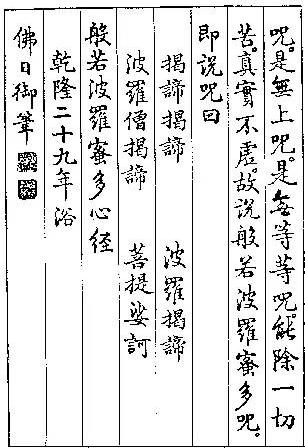 咒。是無上咒。是無等等咒。能除一切
苦。真實不虛。故說般若波羅蜜多咒。
即說咒曰
揭諦揭諦　波羅揭諦
波羅僧揭諦　菩提娑訶
般若波羅蜜多心經
乾隆二十九年浴
佛日御筆